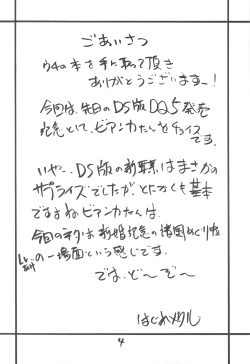 ごあいさつ
ウチの本を手に取って頂き
ありがとうございますー!
今回は、先日のDS版DQ5発売
記念として、ビアンカたんをチョイス
です。
いやー、DS版の新要素はまさかの
サプライズでしたが、とにかくも基本
ですよねビアンカたんは。
今回のネタは新婚記念の諸国めぐり旅
の一場面という感じです。
では、ど〜ぞ〜
はじめメタル
4